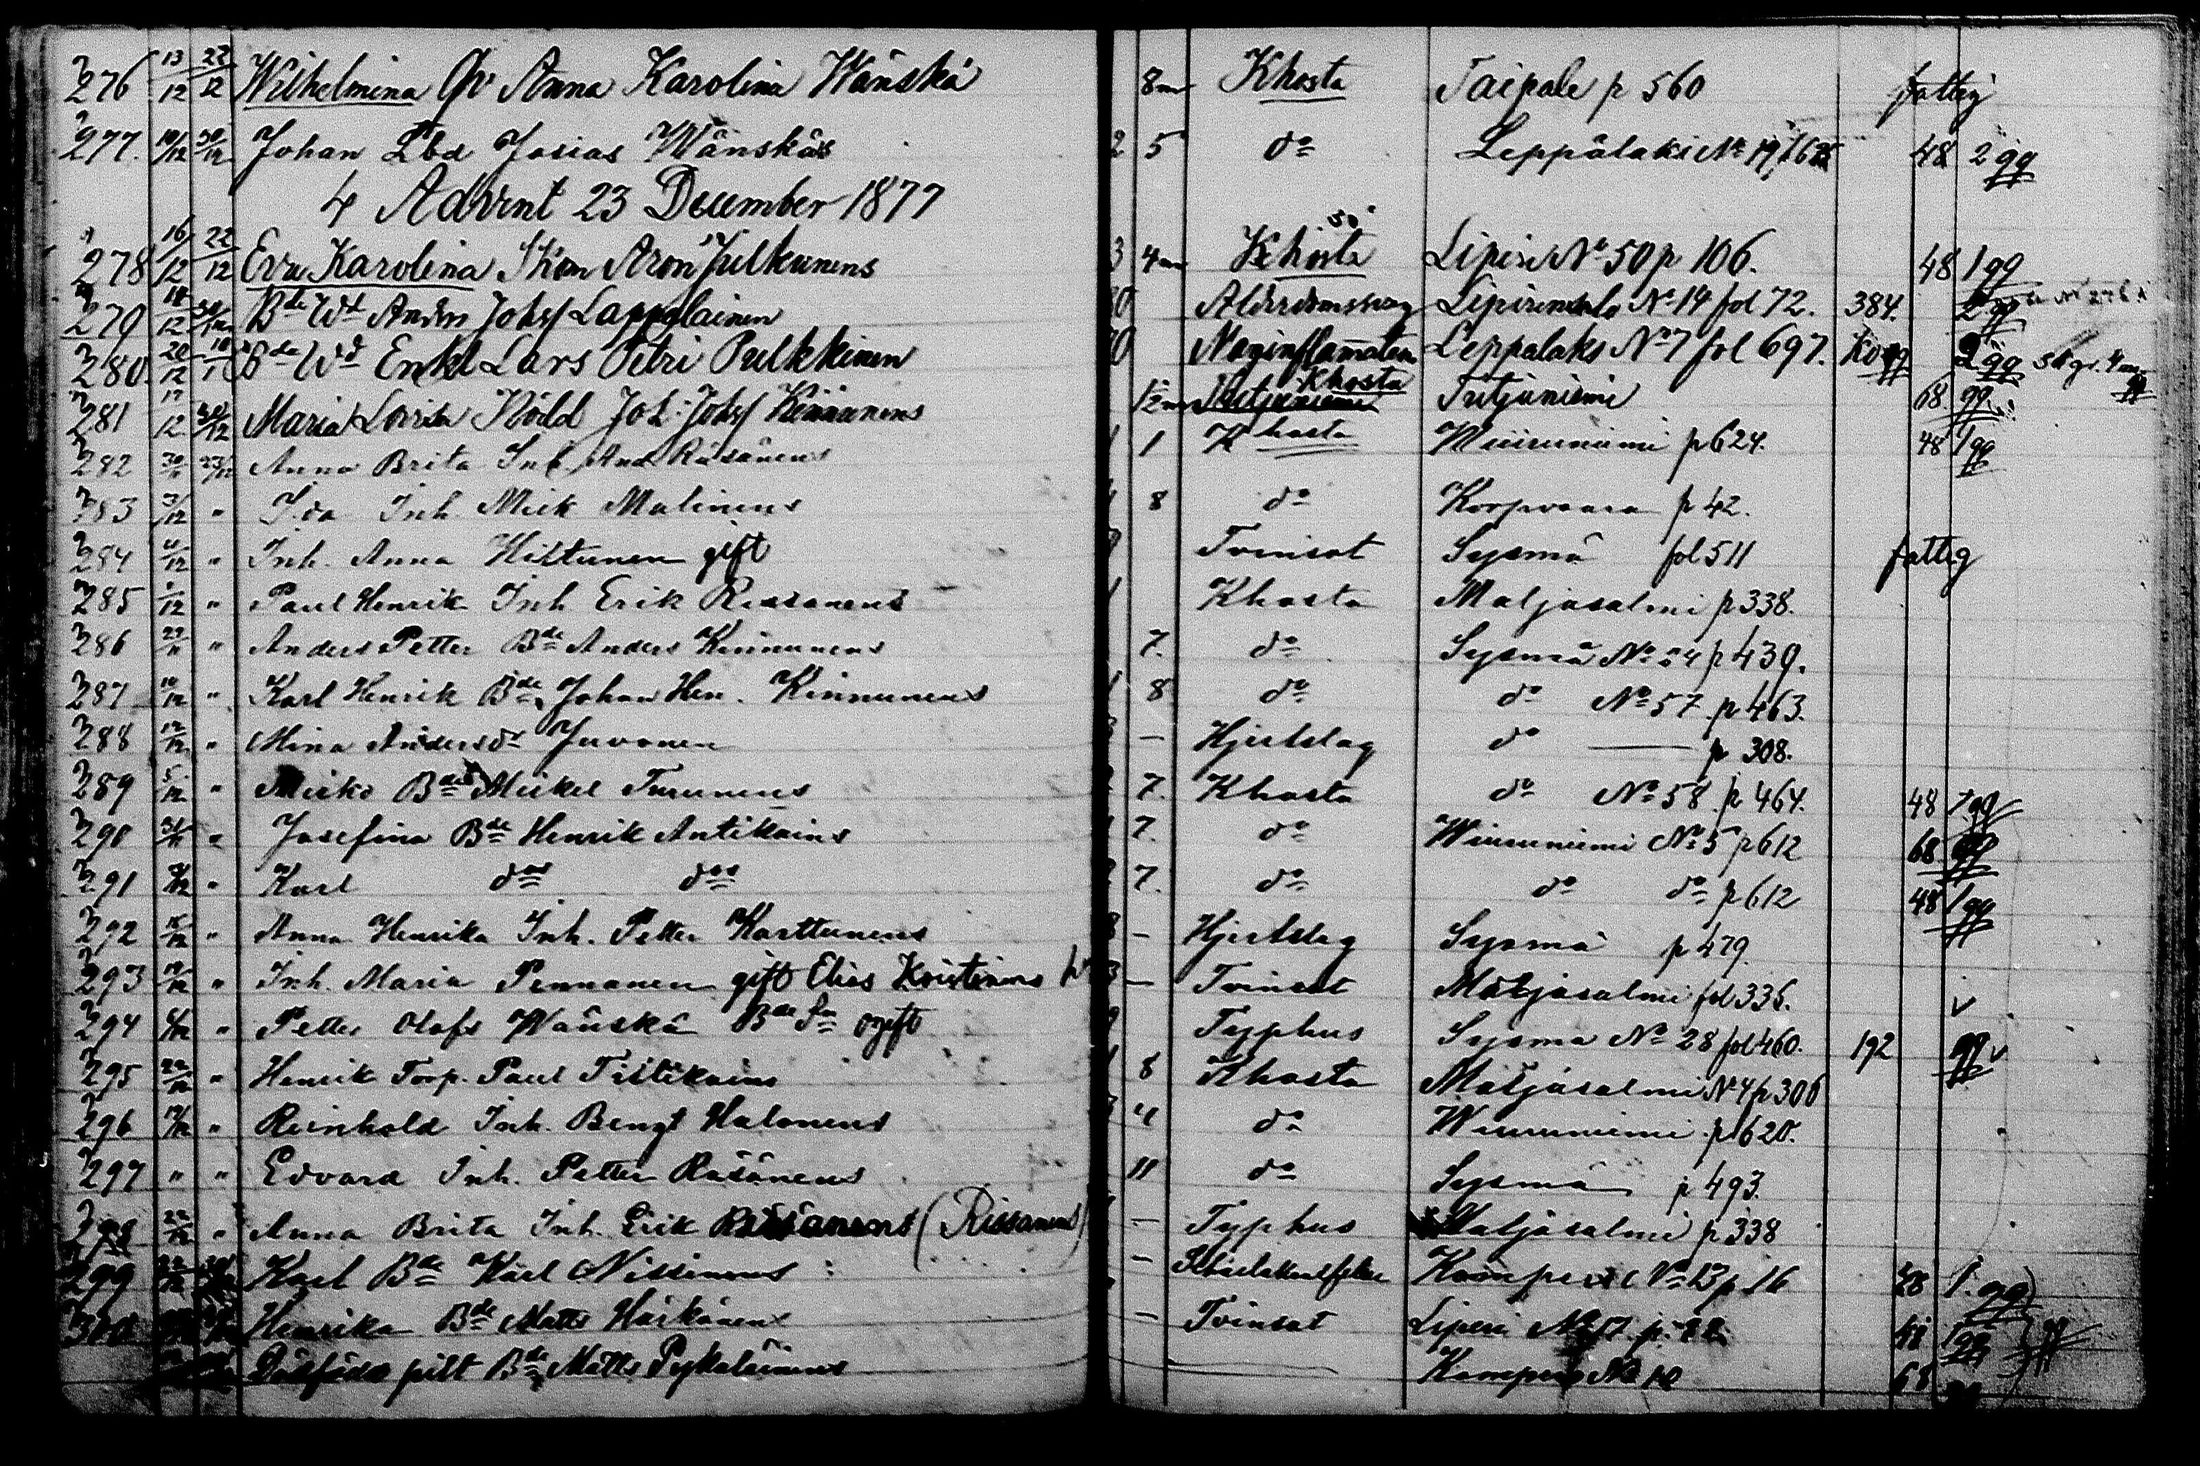 276 13/12 22/12 Wilhelmina Qv Anna Karolina Wänskä 8m Khosta Taipale p 560 fattig
277. 19/12 30/12 Johan Lbd Josias Wänskäs 2 5 do Leppälaks No 19, p 625 48 2 gg
4 Advent 23 December 1877
278 16/12 22/12 Eva Karolina Aron Julkunens 3 4m Khosta Liperi No 50 p 106. 48 1 gg
279 12 30/12 Bde Wd Anders Johsf Lappalainen 0 Ålderdomssvag Liperinsalo No 14 fol 72. 384. 2 gg
280. 20/12 Bde Wd Enkl Lars Petri Pulkkinen 0 Maginflamation Leppälaks No 7 fol 697. 2 gg
281 17/12 30/12 Maria Lovisa Joh: Johsf Kinnunens 1/2 m Khosta Tutjuniemi 68 gg
282 30/11 23/12 Anna Brita Inh. And. Räsänens 1 1 Khosta Wiiuruniemi p 624. 48 1 gg
283 3/12 " Ida Inh. Mick Malinens 8 do Korpivaara p 42.
284 4/12 " Inh. Anna Hiltunen gift Tvinsot Sysmä fol 511 fattig
285 1/12 " Paul Henrik Inh Erik Rissanens 1 Khosta Matjäsalmi p 338.
286 29/11 " Anders Petter Bde Anders Kinnunens 7. do Sysmä No 54 p 439.
287 10/12 " Karl Henrik Bde Johan Hen. Kinnunens 1 8 do do No 57. p 463.
288 12/12 " Mina Andersdr Juvonen — Hjertslag do — p 308.
289 5/12 " Micko Bdes Mickel Turunens 7. Khosta do No 58. p 464. 48 1 gg
290 " Josefina Bde Henrik Antikains 7. do Wiuruniemi No 5 p 612 68 gg
291 " Karl dos dos 7. do do do p 612 48 1 gg
292 " Anna Henrika Inh. Petter Karttunens 8 — Hjertslag Sysmä p 479.
293 " Inh. Maria Pennanen gift Elias 3 — Tvinsot Matjäsalmi fol 335. v
294 " Petter Olofs Wänskä Bde Sn ogift Typhus Sysmä No 28 fol 460. 192 gg v
295 " Henrik Torp. Paul Tiilikains 1 8 Khosta Matjäsalmi No 4 p 306
296 " Reinhold Inh. Bengt Halonens 4 do Wiuruniemi p 620.
297 " " Edvard Inh. Petter Räsänens 11 do Sysmä p 493.
298 " Anna Brita Inh. Erik Rissanens (Rissanens) — Typhus Matjäsalmi p 338
299 Karl Bde Karl Nissinens — Skarlakansfeber Komperi No 13 p 16 48 1. gg
300 Henrika Bde Matts Häikönens — Tvinsot Liperi No 17 p. 48 1 gg
Dödfödd pilt Bde Matts Pykäläinens — Komperi No 10 68